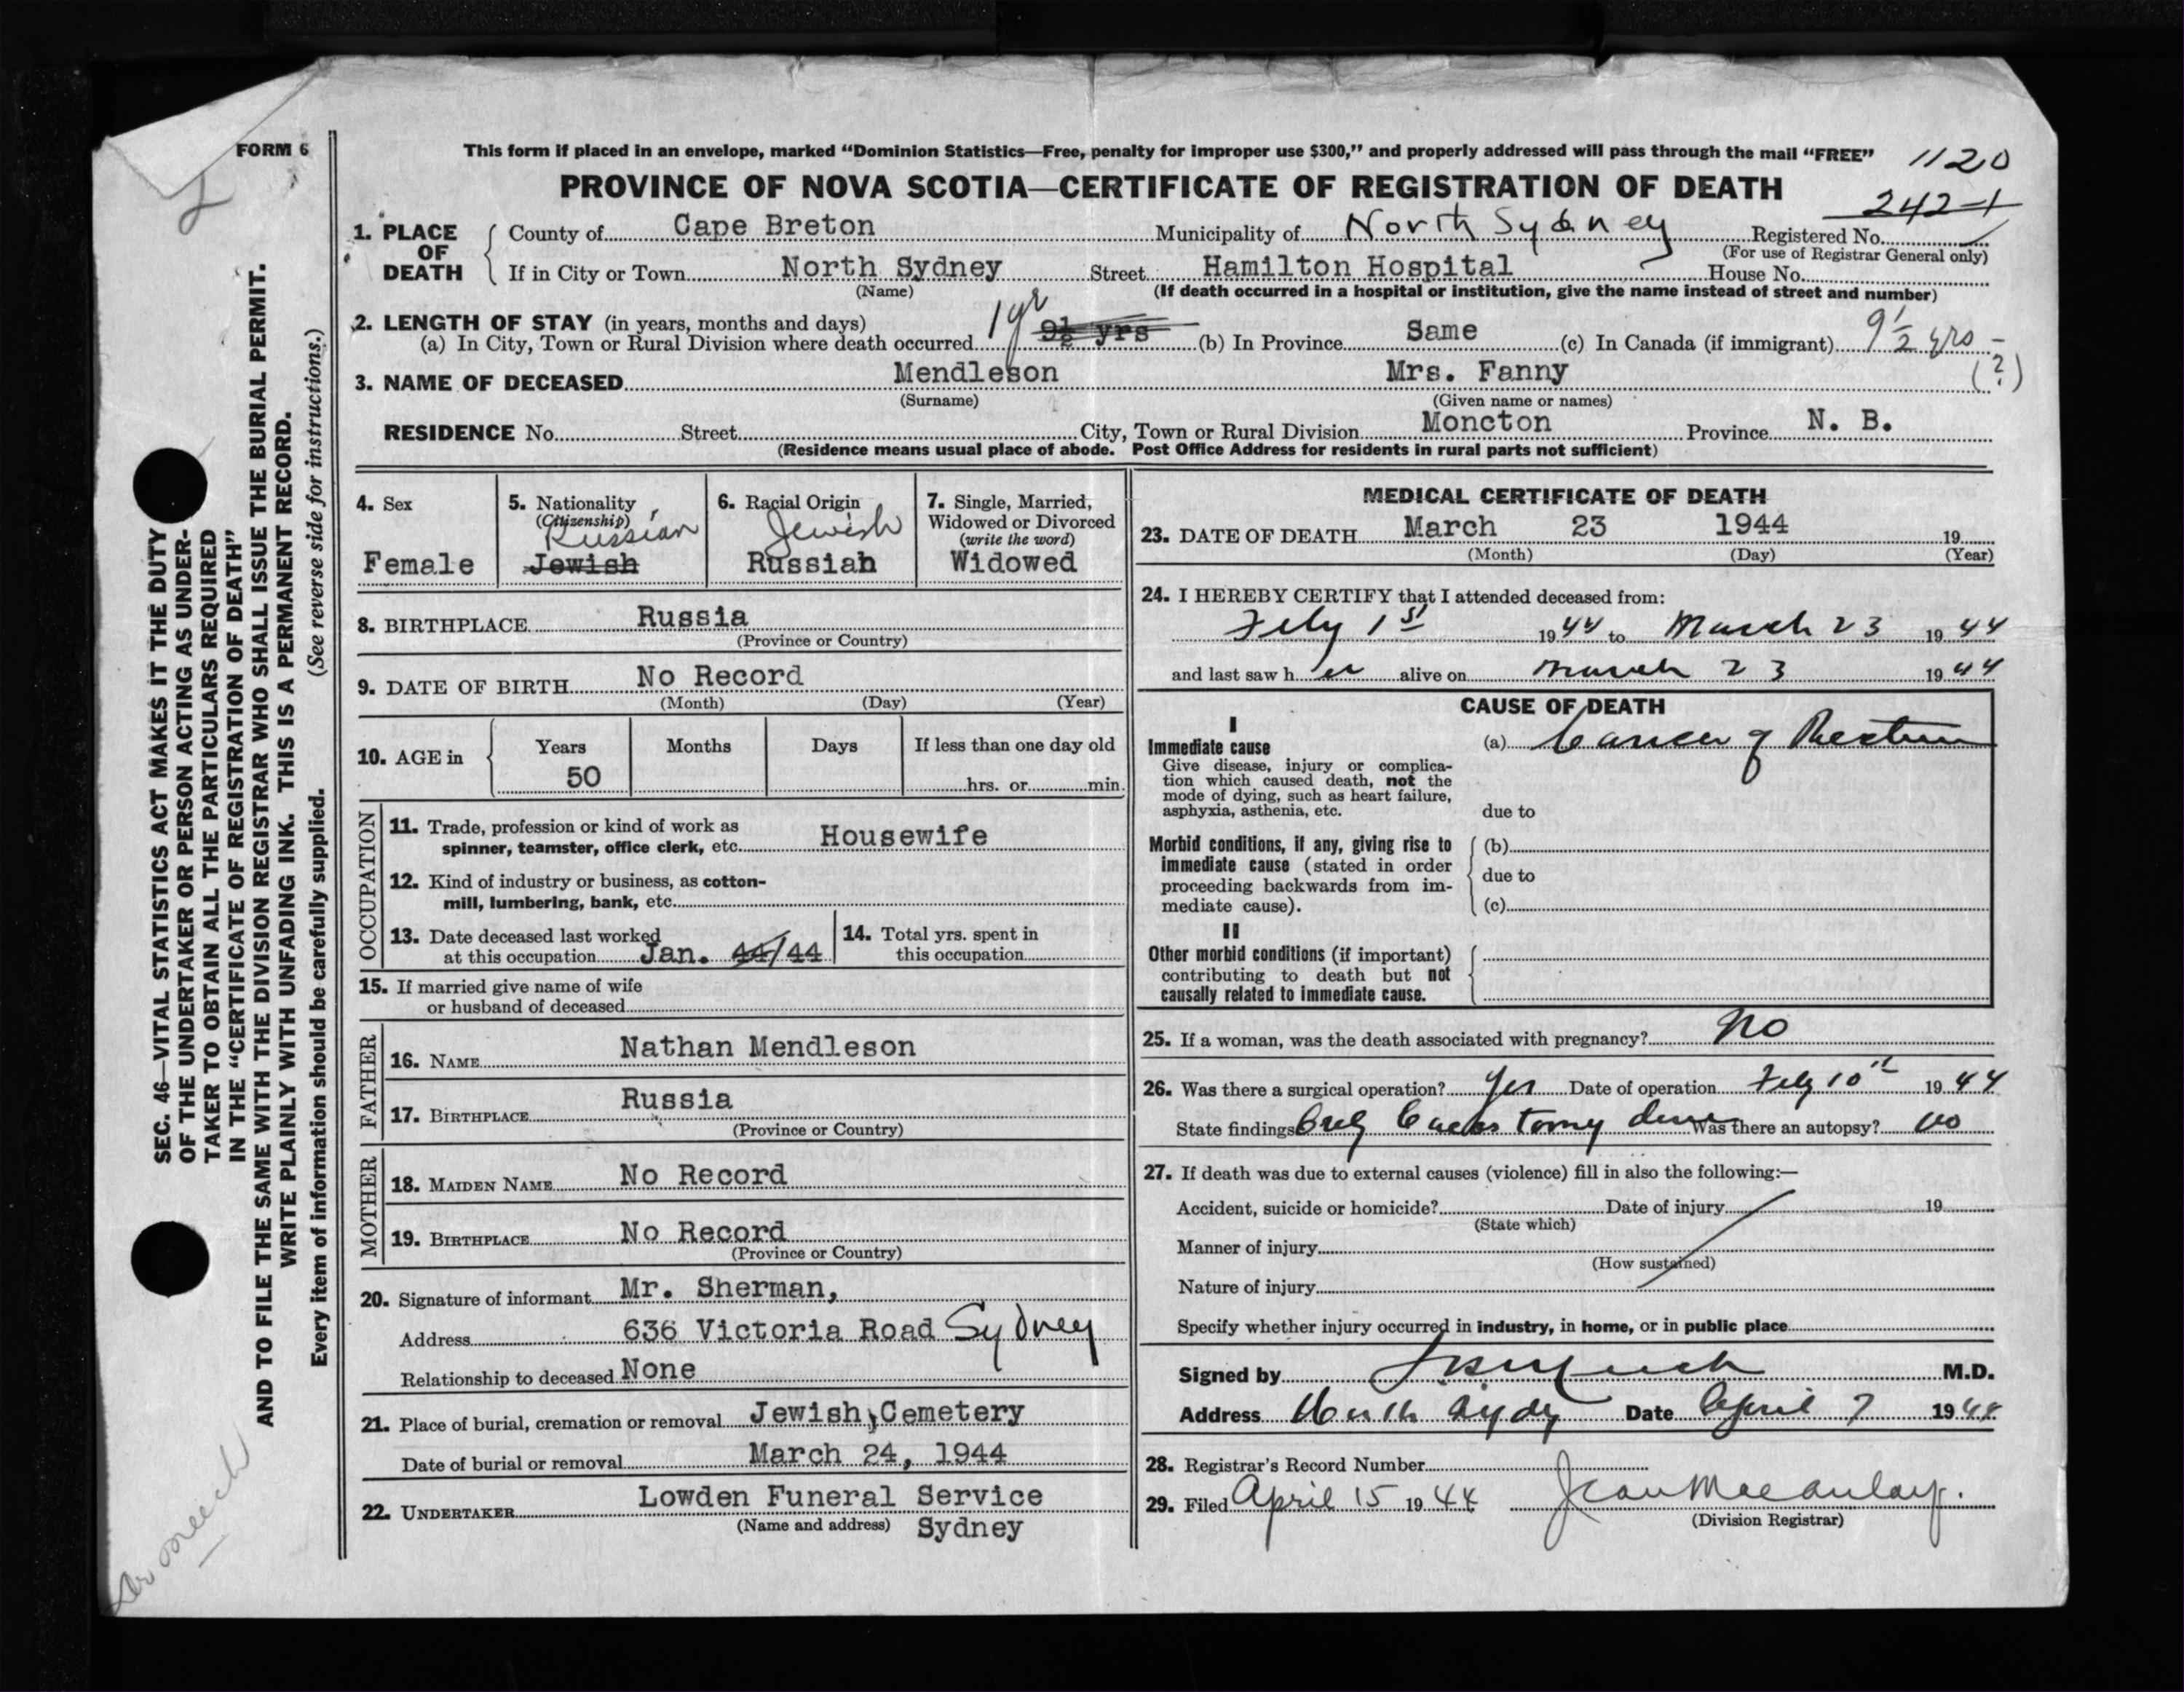 FORM 6
2
This form if placed in an envelope, marked “Dominion Statistics—Free, penalty for improper use $300,” and properly addressed will pass through the mail “FREE”
1120
PROVINCE OF NOVA SCOTIA—CERTIFICATE OF REGISTRATION OF DEATH
1. PLACE OF DEATH
County of Cape Breton Municipality of North Sydney Registered No.
(For use of Registrar General only)
If in City or Town North Sydney Street Hamilton Hospital House No.
(Name) (If death occurred in a hospital or institution, give the name instead of street and number)
2. LENGTH OF STAY (in years, months and days)
(a) In City, Town or Rural Division where death occurred 1 yr 9½ yrs (b) In Province Same (c) In Canada (if immigrant) 9½ yrs - (?)
3. NAME OF DECEASED Mendleson Mrs. Fanny
(Surname) (Given name or names)
RESIDENCE No. Street City, Town or Rural Division Moncton Province N. B.
(Residence means usual place of abode. Post Office Address for residents in rural parts not sufficient)
4. Sex
Female
5. Nationality
(Citizenship)
Russian
Jewish
6. Racial Origin
Jewish
Russian
7. Single, Married,
Widowed or Divorced
(write the word)
Widowed
8. BIRTHPLACE Russia
(Province or Country)
9. DATE OF BIRTH No Record
(Month) (Day) (Year)
10. AGE in Years Months Days If less than one day old
50 hrs. or min.
OCCUPATION
11. Trade, profession or kind of work as
spinner, teamster, office clerk, etc. Housewife
12. Kind of industry or business, as cotton-
mill, lumbering, bank, etc.
13. Date deceased last worked
at this occupation Jan. 44/44
14. Total yrs. spent in
this occupation
15. If married give name of wife
or husband of deceased
FATHER
16. NAME Nathan Mendleson
17. BIRTHPLACE Russia
(Province or Country)
MOTHER
18. MAIDEN NAME No Record
19. BIRTHPLACE No Record
(Province or Country)
20. Signature of informant Mr. Sherman,
Address 636 Victoria Road Sydney
Relationship to deceased None
21. Place of burial, cremation or removal Jewish Cemetery
Date of burial or removal March 24, 1944
22. UNDERTAKER Lowden Funeral Service
(Name and address) Sydney
MEDICAL CERTIFICATE OF DEATH
23. DATE OF DEATH March 23 1944 19
(Month) (Day) (Year)
24. I HEREBY CERTIFY that I attended deceased from:
Feby 1st 1944 to March 23 1944
and last saw her alive on March 23 1944
CAUSE OF DEATH
I
Immediate cause
Give disease, injury or complica-
tion which caused death, not the
mode of dying, such as heart failure,
asphyxia, asthenia, etc.
(a) Cancer of Rectum
due to
Morbid conditions, if any, giving rise to
immediate cause (stated in order
proceeding backwards from im-
mediate cause).
(b)
due to
(c)
II
Other morbid conditions (if important)
contributing to death but not
causally related to immediate cause.
25. If a woman, was the death associated with pregnancy? No
26. Was there a surgical operation? Yes Date of operation Feby 10th 1944
State findings Was there an autopsy? No
27. If death was due to external causes (violence) fill in also the following:—
Accident, suicide or homicide? Date of injury 19
(State which)
Manner of injury
(How sustained)
Nature of injury
Specify whether injury occurred in industry, in home, or in public place
Signed by M.D.
Address North Sydy Date April 7 1944
28. Registrar's Record Number
29. Filed April 15 1944 Jean Macaulay.
(Division Registrar)
SEC. 46—VITAL STATISTICS ACT MAKES IT THE DUTY
OF THE UNDERTAKER OR PERSON ACTING AS UNDER-
TAKER TO OBTAIN ALL THE PARTICULARS REQUIRED
IN THE “CERTIFICATE OF REGISTRATION OF DEATH”
AND TO FILE THE SAME WITH THE DIVISION REGISTRAR WHO SHALL ISSUE THE BURIAL PERMIT.
WRITE PLAINLY WITH UNFADING INK. THIS IS A PERMANENT RECORD.
Every item of information should be carefully supplied. (See reverse side for instructions.)